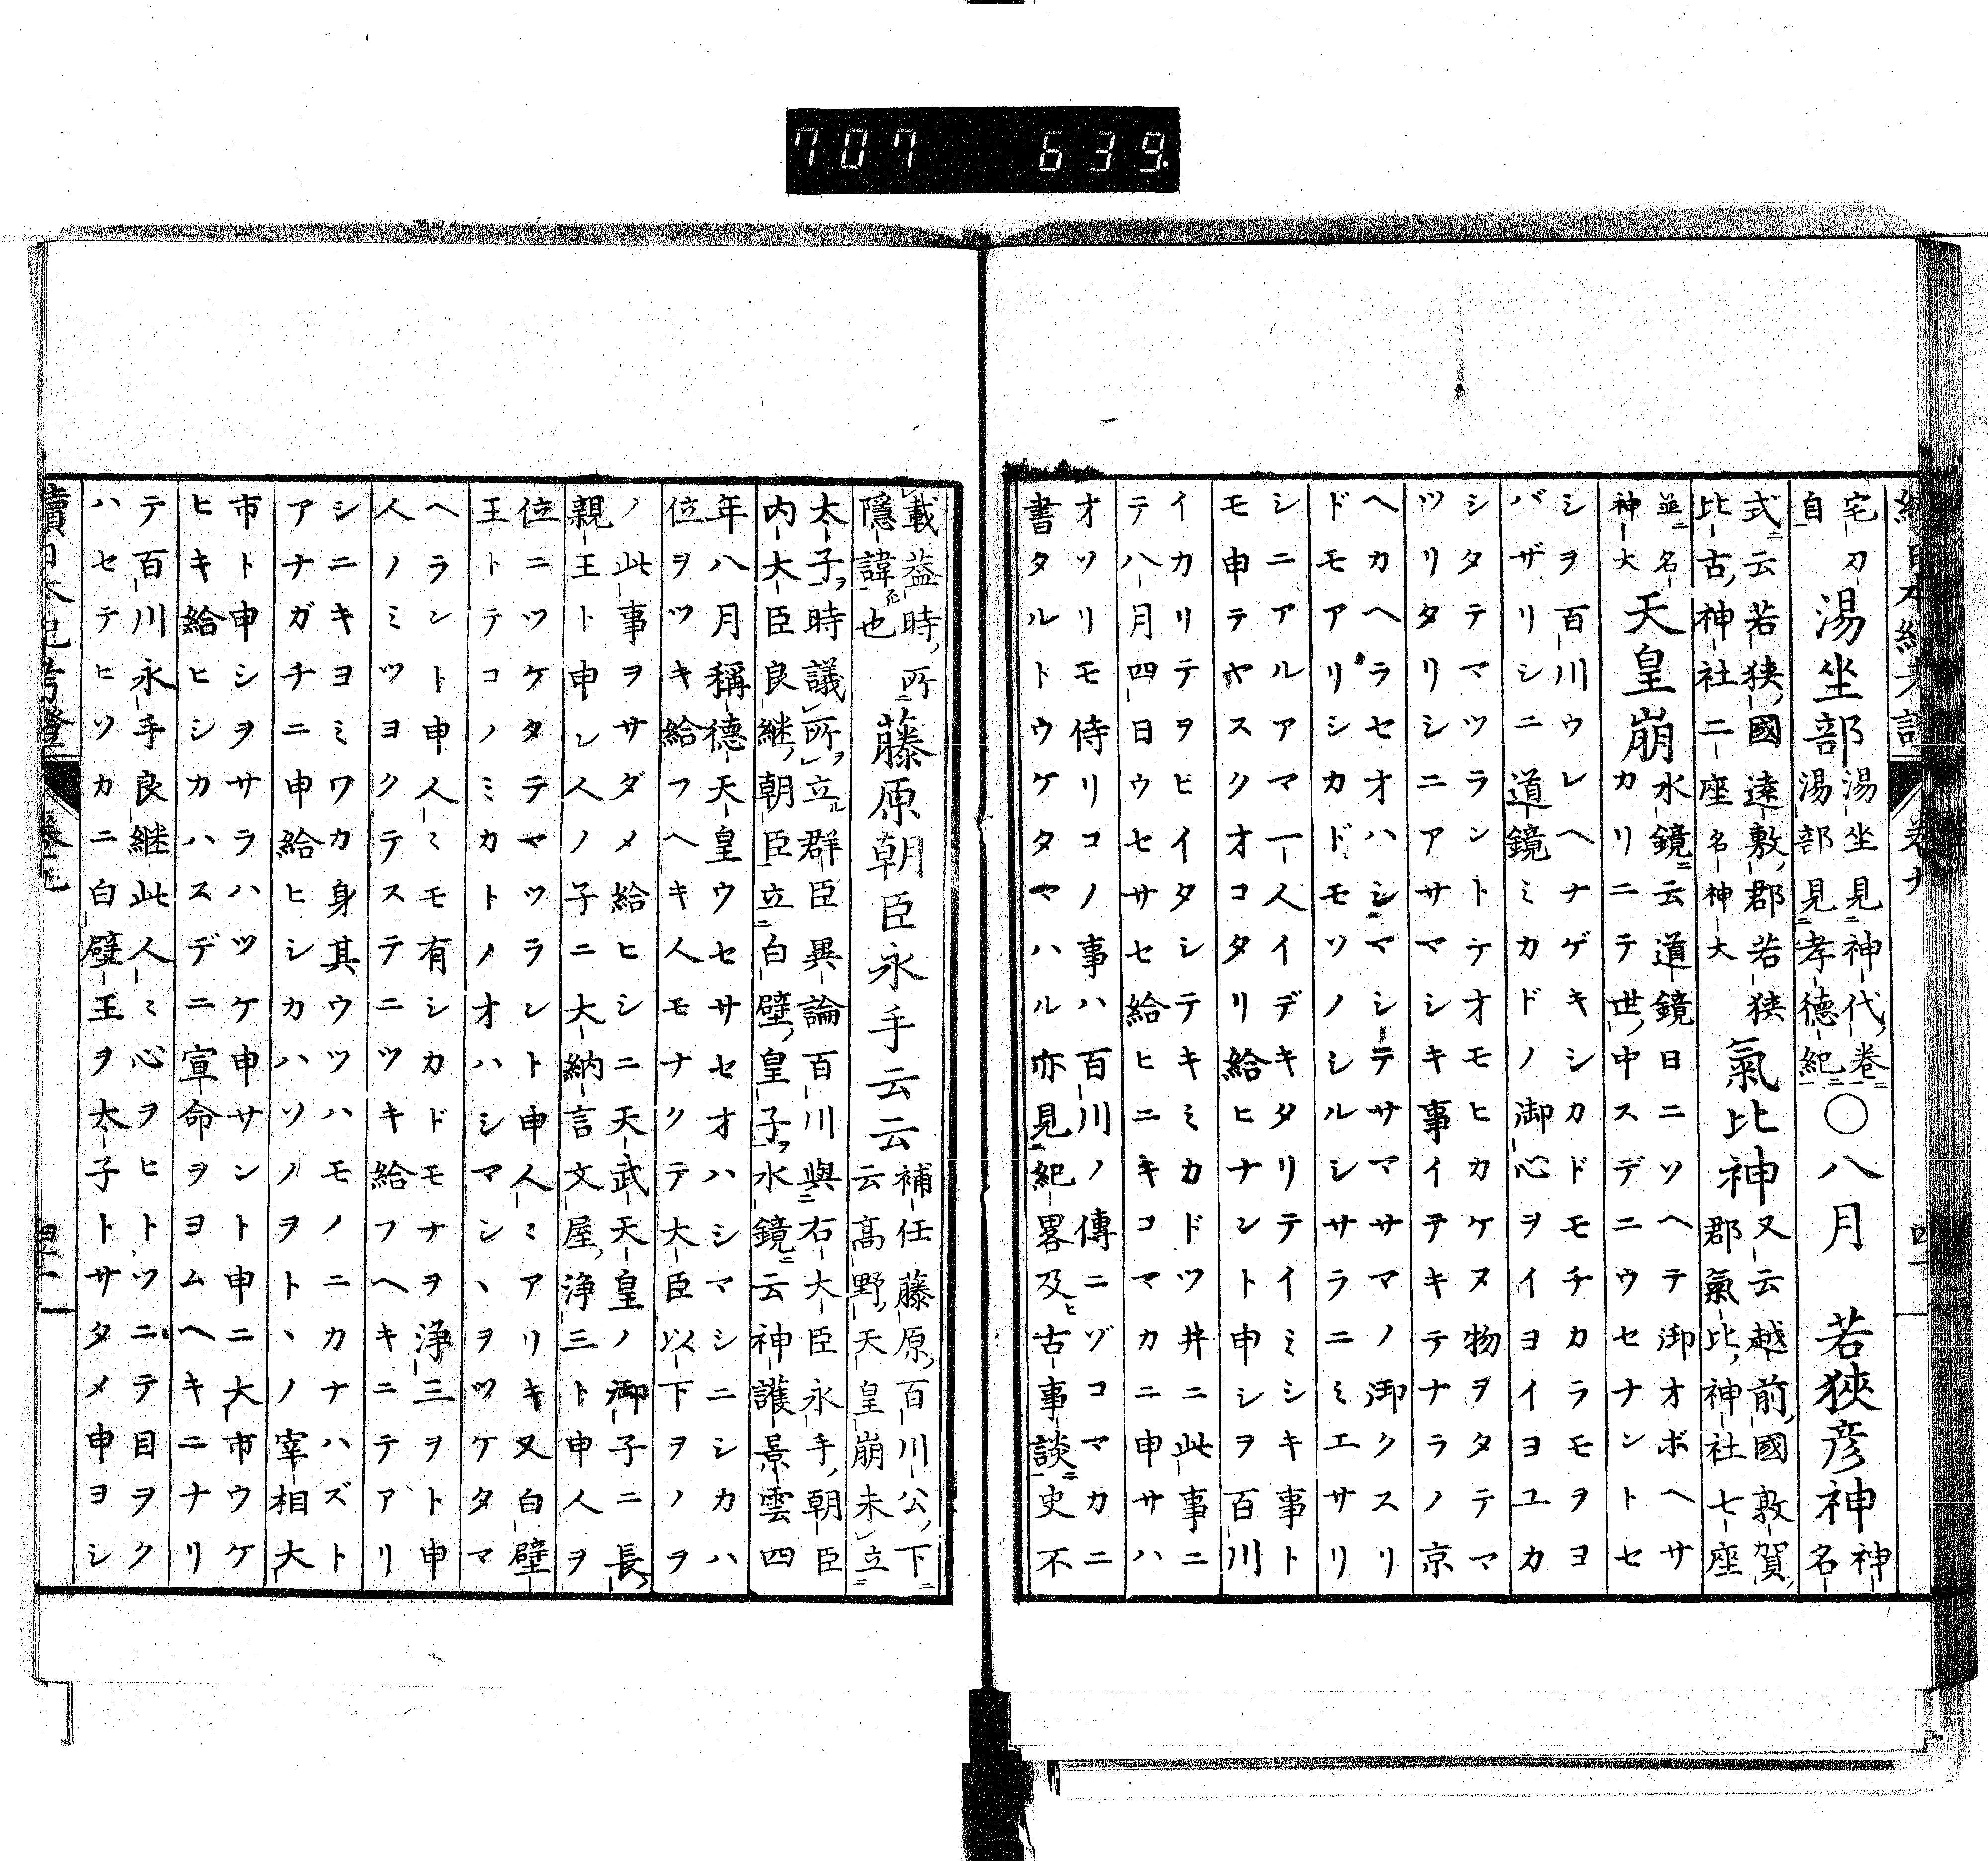 宅刀
自
湯坐部
湯坐見神代卷
湯部見孝德紀
〇八月　若狹彦神
神名
式云若狹國遠敷郡若狹
比古神社二座名神大
氣比神
又云越前國敦賀
郡氣比神社七座
並名
神大
天皇崩
水鏡云道鏡日ニソヘテ御オボヘサ
カリニテ世中スデニウセナントセ
シヲ百川ウレヘナゲキシカドモチカラモヲヨ
バザリシニ道鏡ミカドノ御心ヲイヨイヨユカ
シタテマツラントテオモヒカケヌ物ヲタテマ
ツリタリシニアサマシキ事イテキテナラノ京
ヘカヘラセオハシマシテサマサマノ御クスリ
ドモアリシカドモソノシルシサラニミエサリ
シニアルアマ一人イデキタリテイミシキ事ト
モ申テヤスクオコタリ給ヒナント申シヲ百川
イカリテヲヒイタシテキミカドツ井ニ此事ニ
テ八月四日ウセサセ給ヒニキコマカニ申サハ
オソリモ侍リコノ事ハ百川ノ傳ニゾコマカニ
書タルドウケタマハル亦見紀畧及ヒ古事談史不
載蓋時所
隱諱也
藤原朝臣永手云云
補任藤原百川公下
云高野天皇崩未立
太子ヲ時議所ヲ立ル群臣異論百川與右大臣永手朝臣
内大臣良継朝臣立白壁皇子ヲ水鏡云神護景雲四
年八月稱德天皇ウセサセオハシマシニシカハ
位ヲツキ給フヘキ人モナクテ大臣以下ヲノヲ
ノ此事ヲサダメ給ヒシニ天武天皇ノ御子ニ長
親王ト申シ人ノ子ニ大納言文屋浄三ト申人ヲ
位ニツケタテマツラント申人ミアリキ又白壁
王トテコノミカトノオハシマシヽヲツケタマ
ヘラント申人ミモ有シカドモナヲ浄三ヲト申
人ノミツヨクテステニツキ給フヘキニテアリ
シニキヨミワカ身其ウツハモノニカナハズト
アナガチニ申給ヒシカハソノヲトヽノ宰相大
市ト申シヲサラハツケ申サント申ニ大市ウケ
ヒキ給ヒシカハスデニ宣命ヲヨムヘキニナリ
テ百川永手良継此人ミ心ヲヒトツニテ目ヲク
ハセテヒソカニ白壁王ヲ太子トサタメ申ヨシ
續日本紀考證
707 639